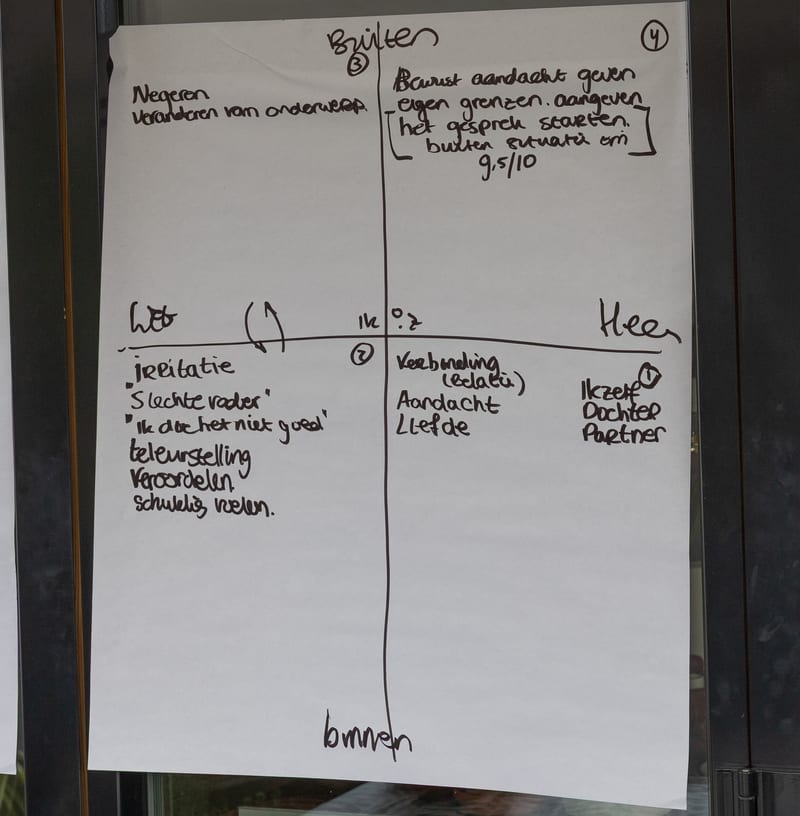 Buiten
④
③
Negeren
Veranderen van onderwerp.
Bewust aandacht geven
eigen grenzen. aangeven
[het gesprek starten.
buiten situatie om]
9,5/10
Weg
Ik
Heen
②
irritatie
"Slechte vader"
"ik doe het niet goed"
teleurstelling
veroordelen
schuldig voelen.
Verbinding
(relatie)
Aandacht
Liefde
①
Ikzelf
Dochter
Partner
binnen